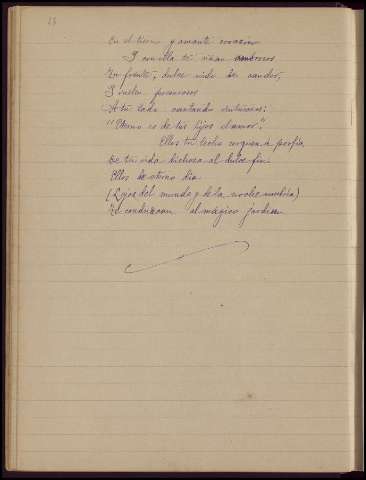 En el tierno y amante corazon
Y con ella te
Tu frente, dulce nido de candor,
Y vuelen presurosos
A tu lado cantando
"Eterno es de tus hijos el amor".
Ellos tu lecho cerquen á porfia
De tu vida dichosa al dulce fin
Ellos de eterno dia
(Lejos del mundo y de la noche umbria)
Te conduzcan al mágico jardin